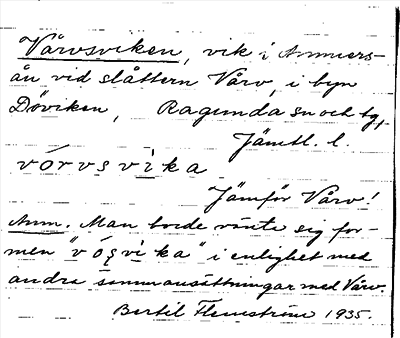 Vårvsviken, vik i Ammers-
ån vid slåttern Vårv, i byn
Döviken, Ragunda sn och tg,
Jämtl. l.
vórvsvìka
Jämför Vårv!
Anm. Man borde vänta sig for-
men "vóşvìka" i enlighet med
andra sammansättningar med Vårv.
Bertil Flemström 1935.